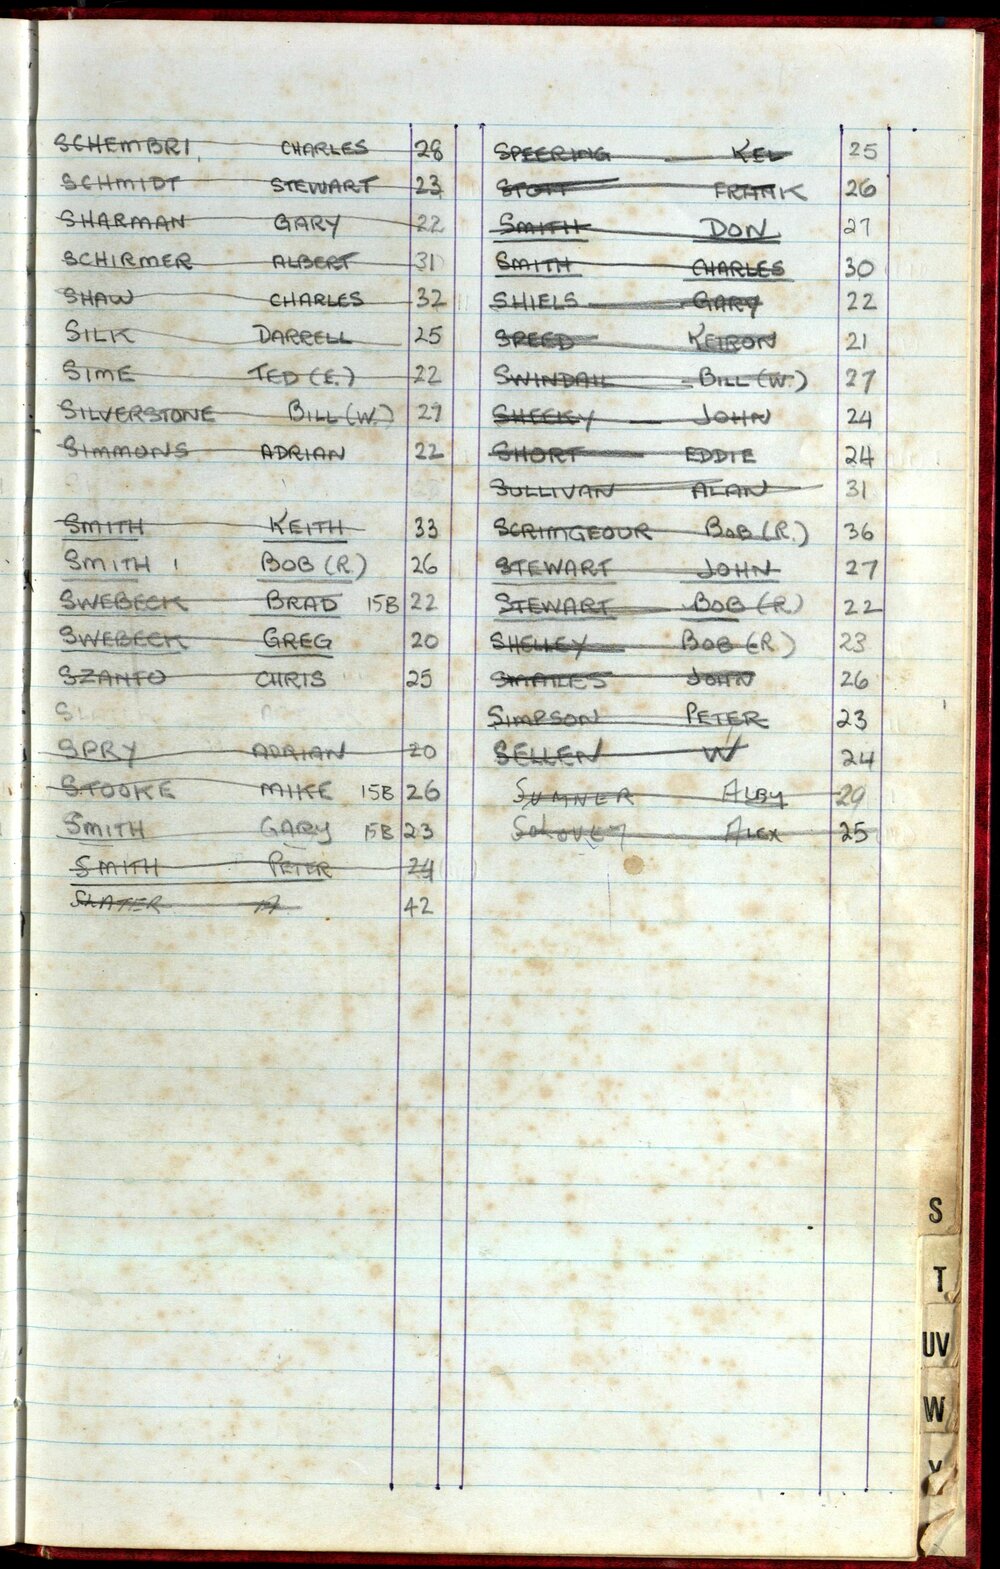 SCHEMBRI CHARLES 28
SCHMIDT STEWART 23
SHARMAN GARY 22
SCHIRMER ALBERT 31
SHAW CHARLES 32
SILK DARRELL 25
SIME TED (E.) 22
SILVERSTONE BILL (W.) 29
SIMMONS ADRIAN 22
SMITH KEITH 33
SMITH BOB (R) 26
SWEBECK BRAD 15B 22
SWEBECK GREG 20
SZANTO CHRIS 25
SPRY ADRIAN 20
STOOKE MIKE 15B 26
SMITH GARY 15B 23
SMITH PETER 24
SLATER A 42
SPEERING KEL 25
STOTT FRANK 26
SMITH DON 27
SMITH CHARLES 30
SHIELS GARY 22
SPEED KEIRON 21
SWINDAIL BILL (W.) 27
SHEEKY JOHN 24
SHORT EDDIE 24
SULLIVAN ALAN 31
SCRIMGEOUR BOB (R.) 36
STEWART JOHN 27
STEWART BOB (R) 22
SHELLEY BOB (R) 23
SMAILES JOHN 26
SIMPSON PETER 23
SELLEN W 24
SUMNER ALBY 29
SOLOVEY ALEX 25
S
T
UV
W